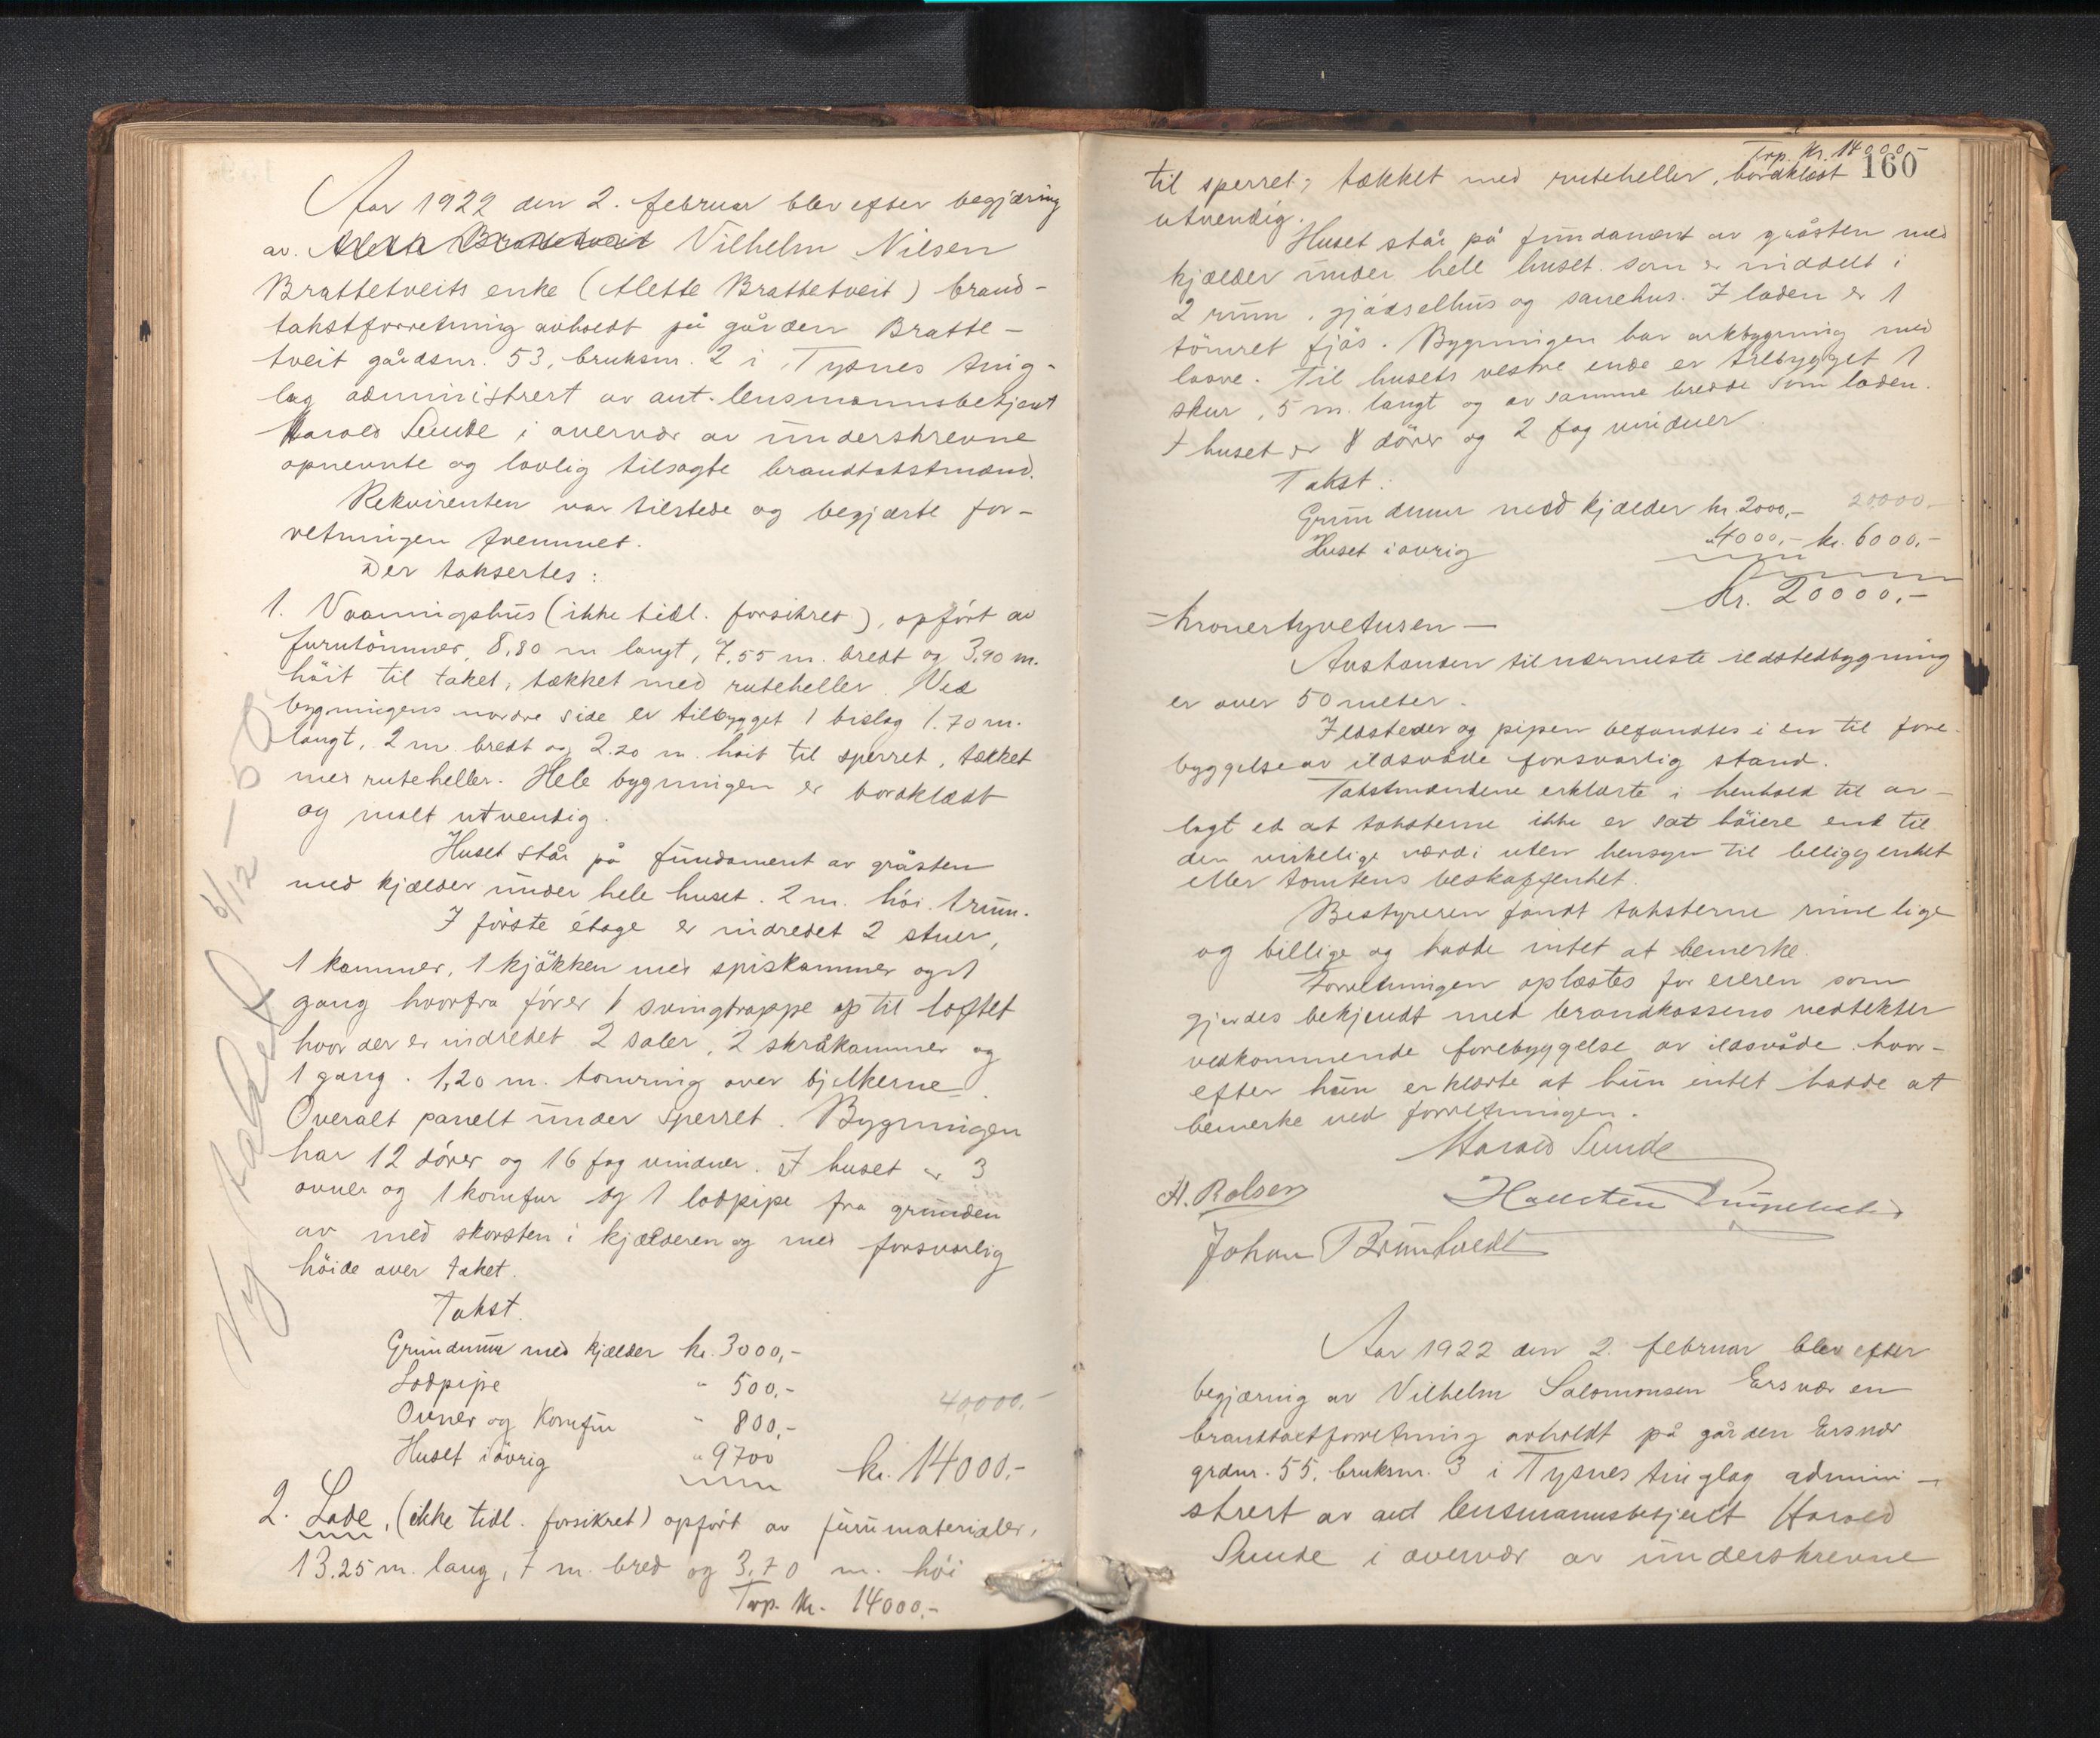 Aar 1922 den 2. februar blev efter begjæring
av. Vilhelm Nilsen
Brattetveits enke (Alette Brattetveit) brand-
takstforretning avholdt på gården Bratte-
tveit gårdsnr. 53, bruksnr. 2 i Tysnes ting-
lag administrert av aut. lensmannsbetjent
Harald Sunde i overvær av underskrevne
opnevnte og lovlig tilsagte brandtakstmænd.
Rekvirenten var tilstede og begjærte for-
retningen fremmet.
Der taksertes:
1. Vaaningshus (ikke tidl. forsikret), opført av
furutømmer, 8,80 m langt, 7,55 m. bredt og 3,90 m.
höit til taket, tækket med ruteheller. Ved
bygningens nordre side er tilbygget 1 bislag 1.70 m.
langt, 2 m. bredt og 2.20 m. höit til sperret, tækket
med ruteheller. Hele bygningen er bordklædt
og malt utvendig.
Huset står på fundament av gråsten
med kjælder under hele huset. 2 m. höi. 1 rum.
I förste étage er indredet 2 stuer,
1 kammer, 1 kjökken med spiskammer og 1
gang hvorfra förer 1 svingtrappe op til loftet
hvor der er indredet 2 saler, 2 skråkammer og
1 gang. 1,20 m. tømring over bjelkerne.
Overalt panelt under sperret. Bygningen
har 12 dörer og 16 fag vinduer. I huset er 3
ovner og 1 komfur og 1 lodpipe fra grunden
av med skorsten i kjælderen og med forsvarlig
höide over taket.
Takst.
Grundmur med kjælder kr. 3000,-
Lodpipe " 500,-
40,000.-
Ovner og Komfur " 800,-
Huset iövrig " 9700 kr. 14000.-
2. Lade, (ikke tidl. forsikret) opfört av furumaterialer,
13.25 m. lang, 7 m. bred og 3,70 m. höi
Trp. Kr. 14000.-
Ny takst
5/12 - 50
Trp. Kr. 14000.-
160
til sperret, tækket med ruteheller, bordklædt
utvendig.
Huset står på fundament av gråsten med
kjælder under hele huset. som er inddelt i
2 rum, gjødselhus og sauehus. I laden er 1
tömret fjös. Bygningen har arkbygning med
laave. Til husets vestre ende er tilbygget 1
skur, 5 m. langt og av samme bredde som laden.
I huset er 8 dörer og 2 fag vinduer.
Takst:
Grundmur med kjælder kr. 2000,- 20,000.-
Huset iövrig " 4000,- kr. 6000.-
Kr. 20000.-
- kronertyvetusen -
Avstanden til nærmeste ildstedbygning
er over 50 meter.
Ildsteder og pipen befandtes i en til fore-
byggelse av ildsvåde forsvarlig stand.
Takstmændene erklærte i henhold til av-
lagt ed at taksterne ikke er sat höiere end til
den virkelige værdi uten hensyn til beliggenhet
eller tomtens beskaffenhet.
Bestyreren fandt taksterne rimelige
og billige og hadde intet at bemerke.
Forretningen oplæstes for eieren som
gjordes bekjendt med brandkassens vedtekter
vedkommende forebyggelse av ildsvåde. hvor-
efter hun erklærte at hun intet hadde at
bemerke ved forretningen.
Harald Sunde
H. Rolsen Hallsten
Johan Brundtvedt
Aar 1922 den 2. februar blev efter
begjæring av Vilhelm Salomonsen Ersvær en
brandtakstforretning avholdt på gården Ersvær
grdnr. 55, bruksnr. 3 i Tysnes tinglag admini-
strert av aut lensmannsbetjent Harald
Sunde i overvær av underskrevne